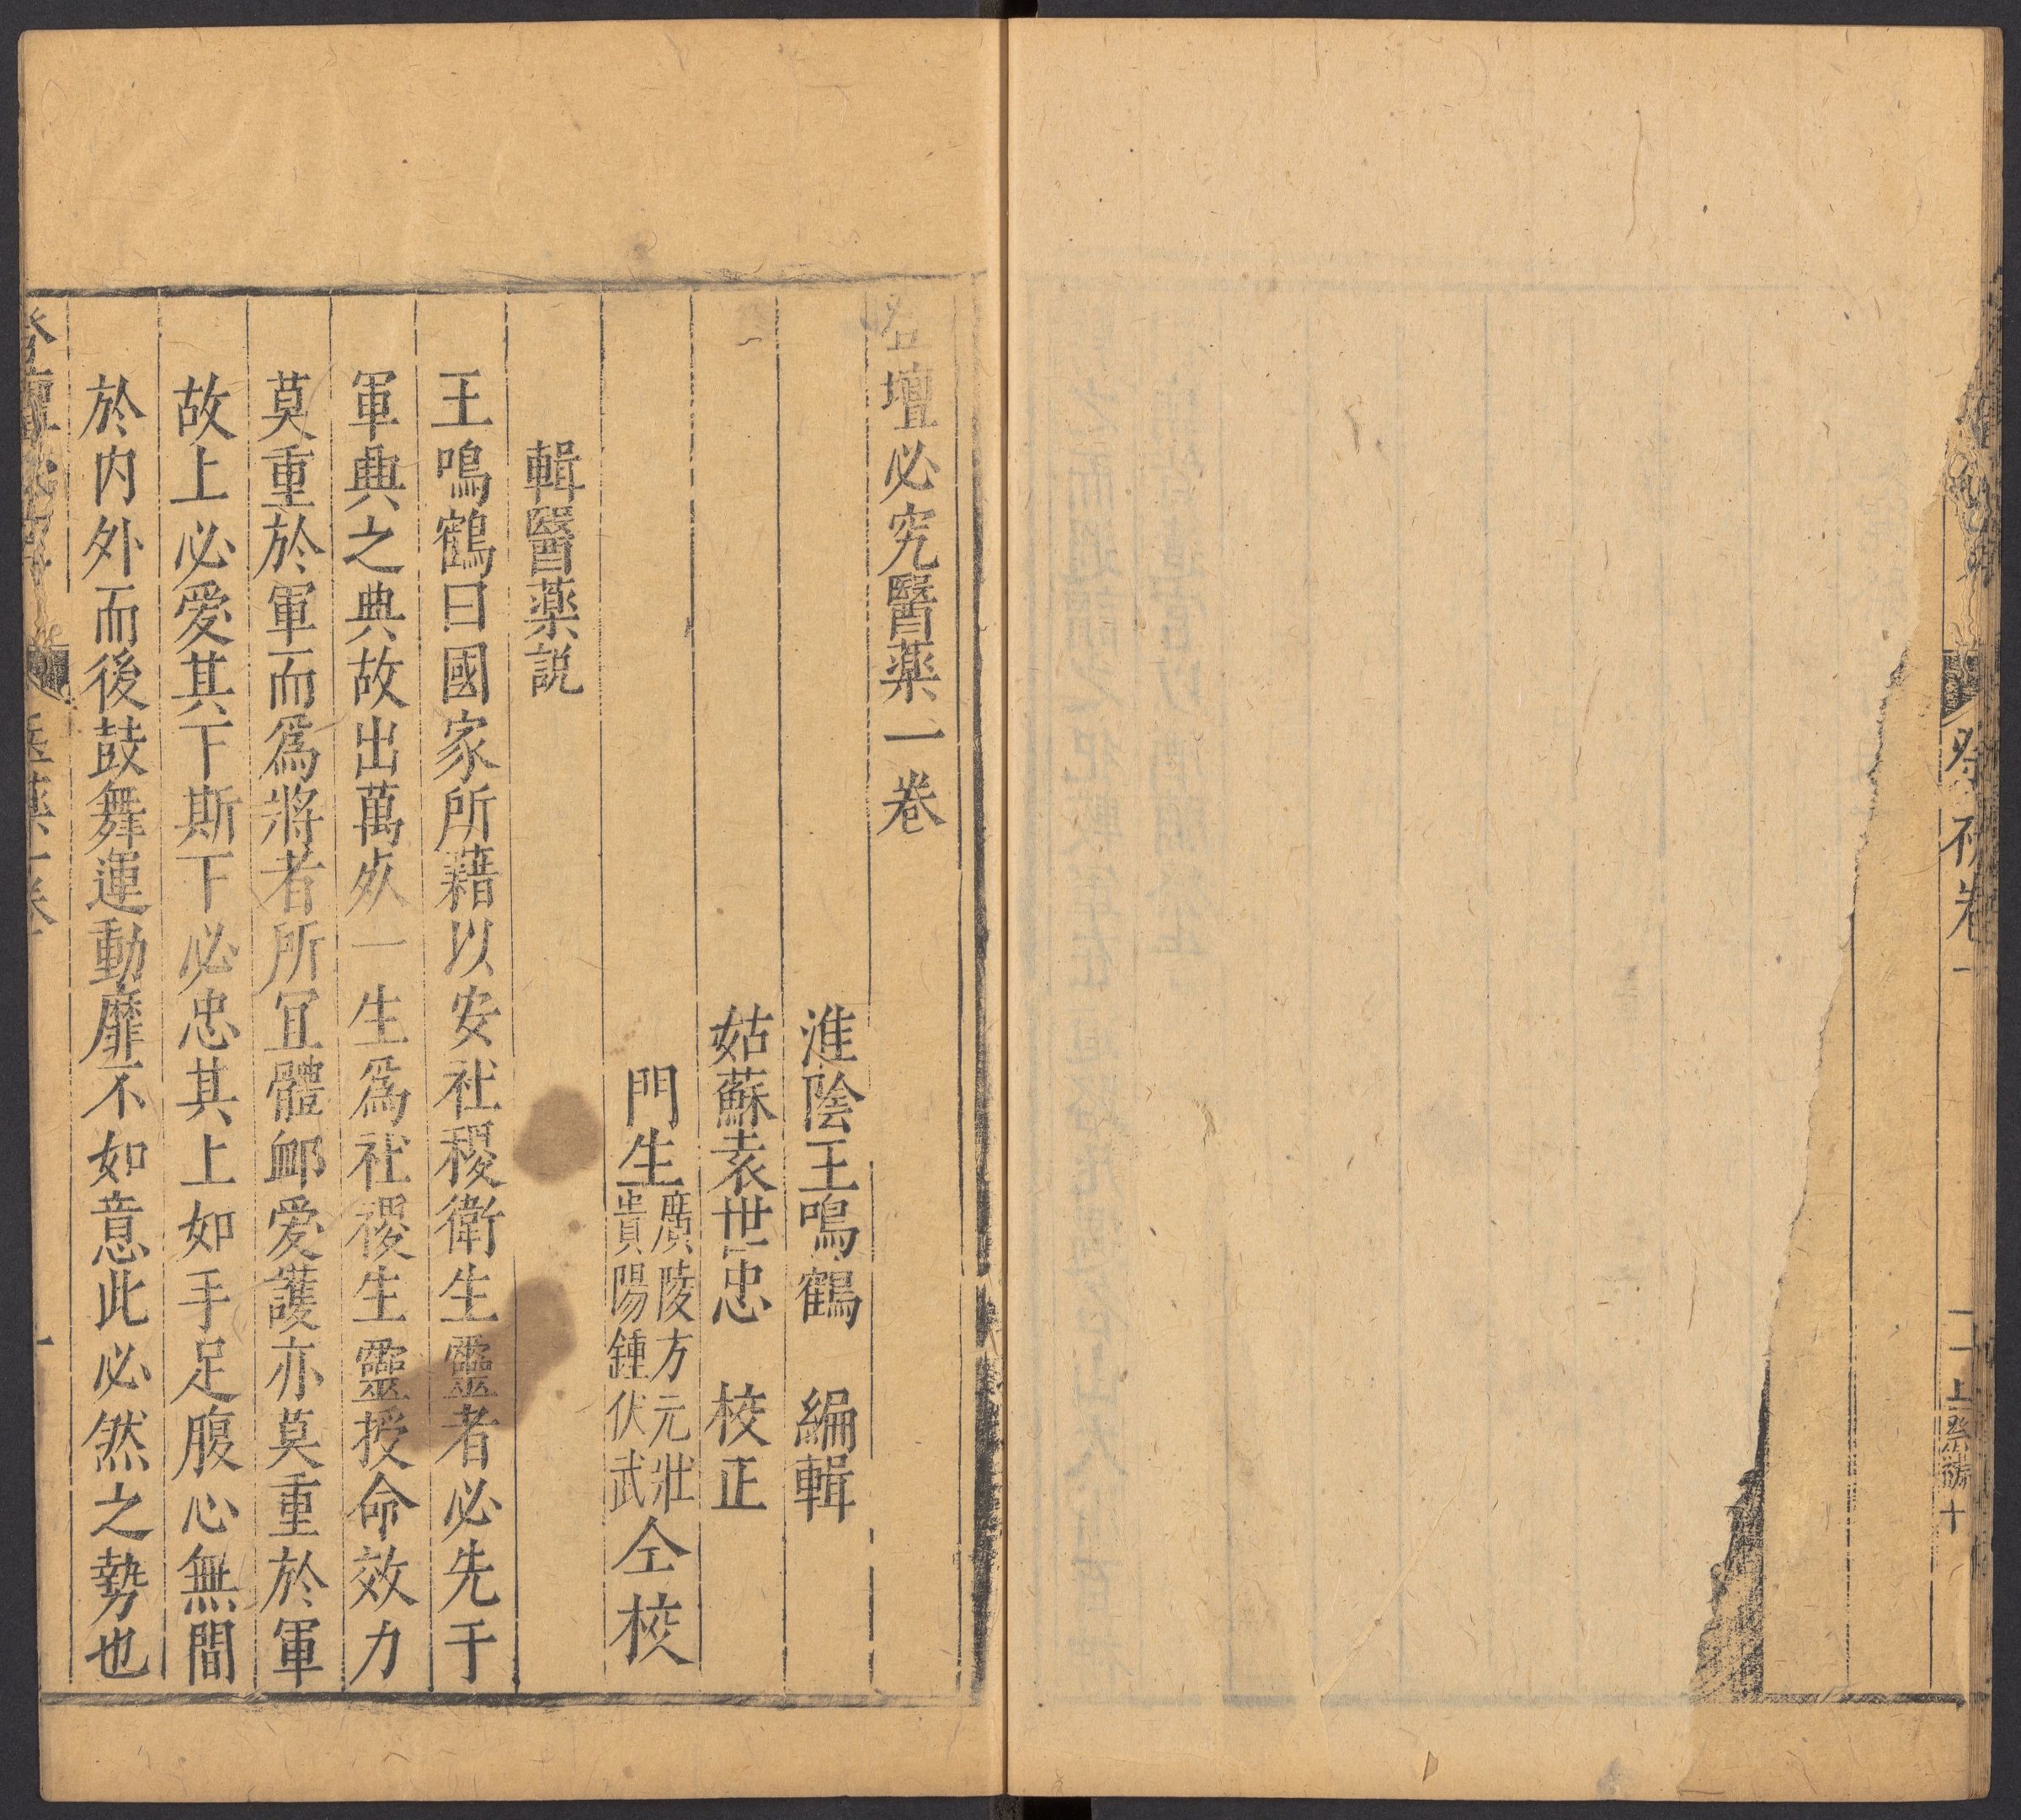 祭祀卷一
登壇必究醫薬一卷
淮陰王鳴鶴　編輯
姑蘇袁世忠　校正
門生廣陵方元壯貴陽鍾伏武仝校
輯醫薬説
王鳴鶴曰國家所藉以安社稷衛生靈者必先于
軍典之典故出萬死一生爲社稷生靈授命效力
莫重於軍而爲將者所冝體卹愛護亦莫重於軍
故上必愛其下斯下必忠其上如手足腹心無間
於内外而後鼓舞運動靡不如意此必然之勢也
登壇必究
醫薬一卷
一